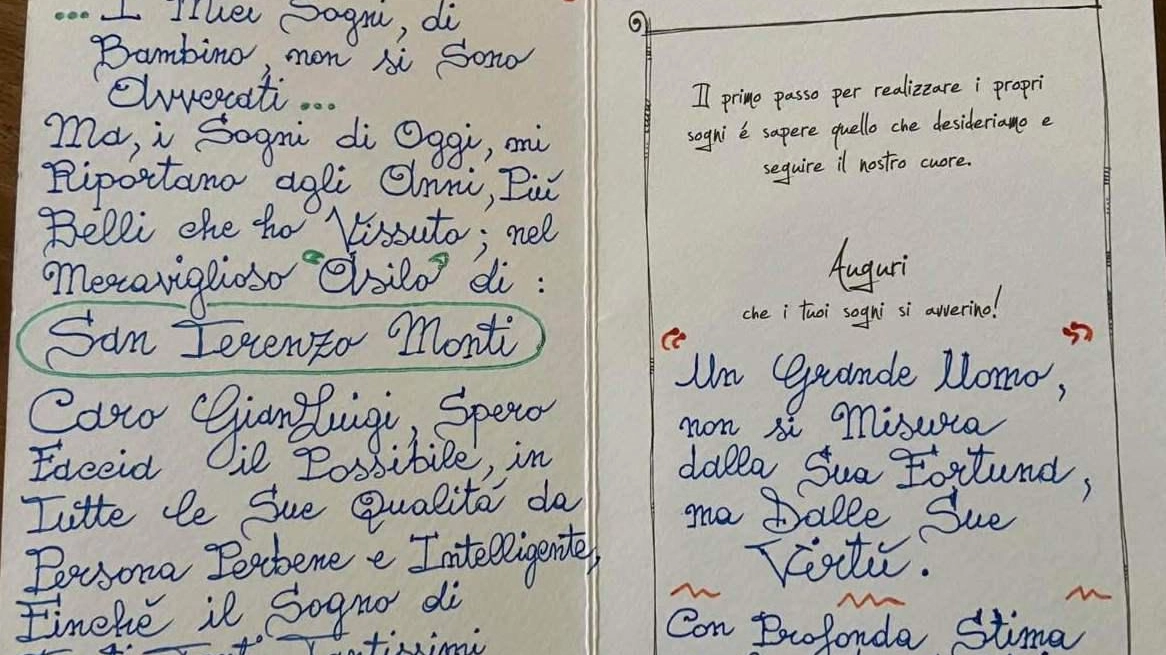 ... I Miei Sogni, di
Bambino, non si Sono
Avverati...
Ma, i Sogni di Oggi, mi
Riportano agli Anni, Più
Belli che ho Vissuto; nel
Meraviglioso "Asilo" di :
San Terenzo Monti
Caro GianLuigi, Spero
Faccia il Possibile, in
Tutte le Sue Qualità da
Persona Perbene e Intelligente,
Finchè il Sogno di
Tantissimi
Il primo passo per realizzare i propri
sogni é sapere quello che desideriamo e
seguire il nostro cuore.
Auguri
che i tuoi sogni si avverino!
"Un Grande Uomo, "
non si Misura
dalla Sua Fortuna,
ma Dalle Sue
Virtù.
Con Profonda Stima